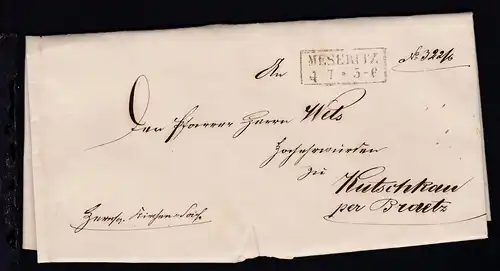 MESERITZ
4 7 * 5-6
No 322/6
An
Den Pfarrer Herrn Wels
Hochehrwürden
zu
Kutschkau
per Braetz
Herrsch. Kirchen-Sache